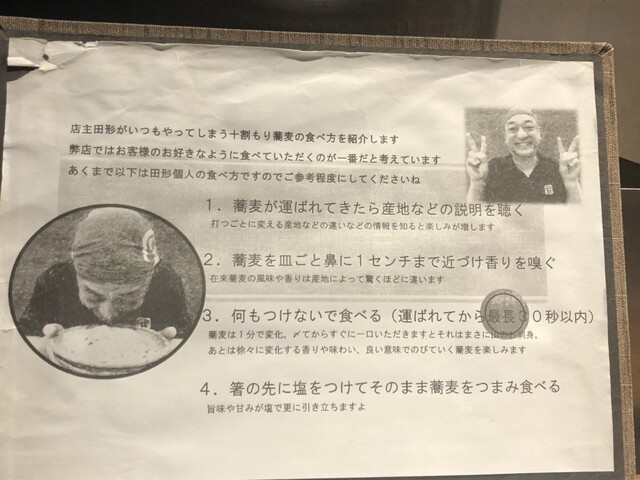 店主田形がいつもやってしまう十割もり蕎麦の食べ方を紹介します
弊店ではお客様のお好きなように食べていただくのが一番だと考えています
あくまで以下は田形個人の食べ方ですのでご参考程度にしてくださいね
1．蕎麦が運ばれてきたら産地などの説明を聴く
打つごとに変える産地などの違いなどの情報を知ると楽しみが増します
2．蕎麦を皿ごと鼻に1センチまで近づけ香りを嗅ぐ
在来蕎麦の風味や香りは産地によって驚くほどに違います
3．何もつけないで食べる（運ばれてから最長30秒以内）
蕎麦は1分で変化。〆てからすぐに一口いただきますとそれはまさに山のお刺身。
あとは徐々に変化する香りや味わい、良い意味でのびていく蕎麦を楽しみます
4．箸の先に塩をつけてそのまま蕎麦をつまみ食べる
旨味や甘みが塩で更に引き立ちますよ